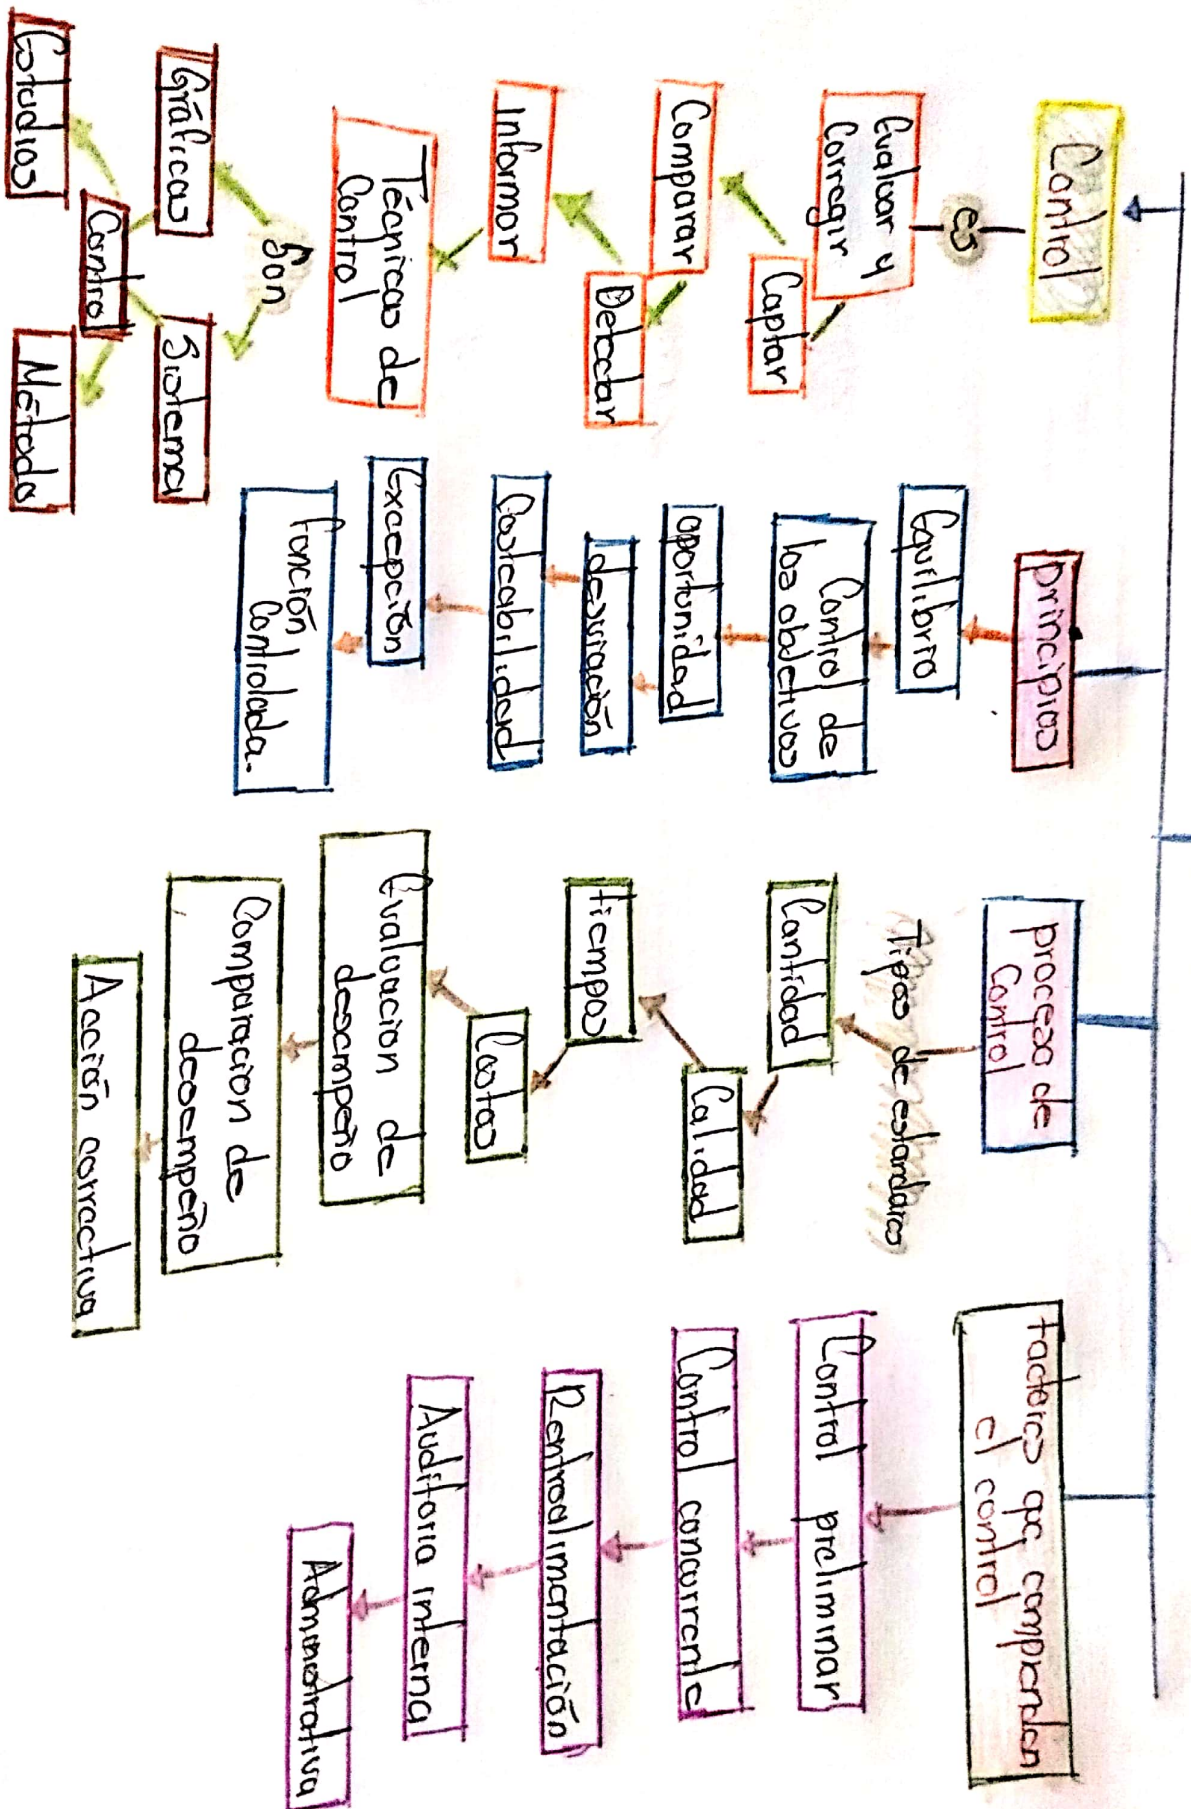 Control
es
Evaluar y
Corregir
Captar
Comparar
Detectar
Informar
Técnicas de
Control
Son
Gráficas
Sistema
Control
Estudios
Método
principios
Equilibrio
Control de
los objetivos
oportunidad
desviación
Costeabilidad
Excepción
función
Controlada.
proceso de
Control
Tipos de estandares
Cantidad
Calidad
tiempos
Costos
Evaluacion de
desempeño
Comparacion de
desempeño
Acción correctiva
factores qe comprenden
el control
Control preliminar
Control concurrente
Rentroalimentación
Auditoria interna
Administrativa